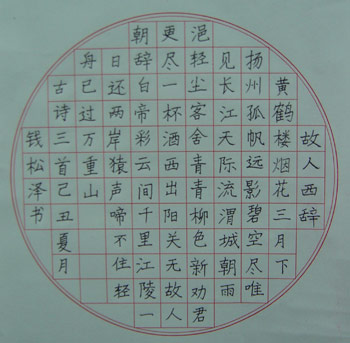 故人西辞
黄鹤楼烟花三月下
扬州孤帆远影碧空尽唯
见长江天际流渭城朝雨
浥轻尘客舍青青柳色新劝君
更尽一杯酒西出阳关无故人
朝辞白帝彩云间千里江陵一
日还两岸猿声啼不住轻
舟已过万重山
古诗三首己丑夏月
钱松泽书